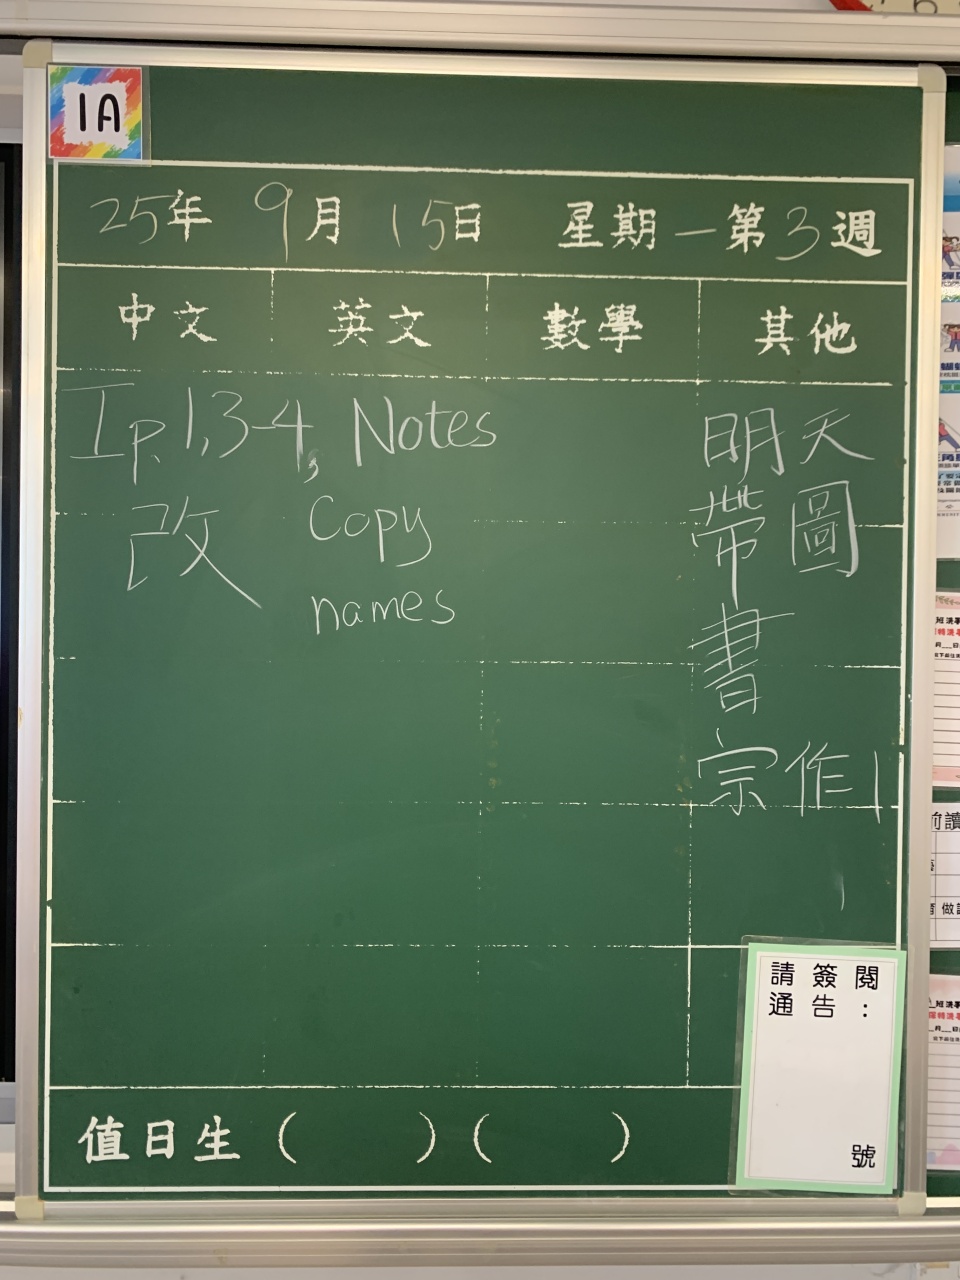 1A
25年 9月 15日 星期一第3週
中文 英文 數學 其他
工p.1,3-4,
改
Notes
Copy
names
明天
帶圖
書
宗作1
值日生( )( )
請簽閱
通告:
號